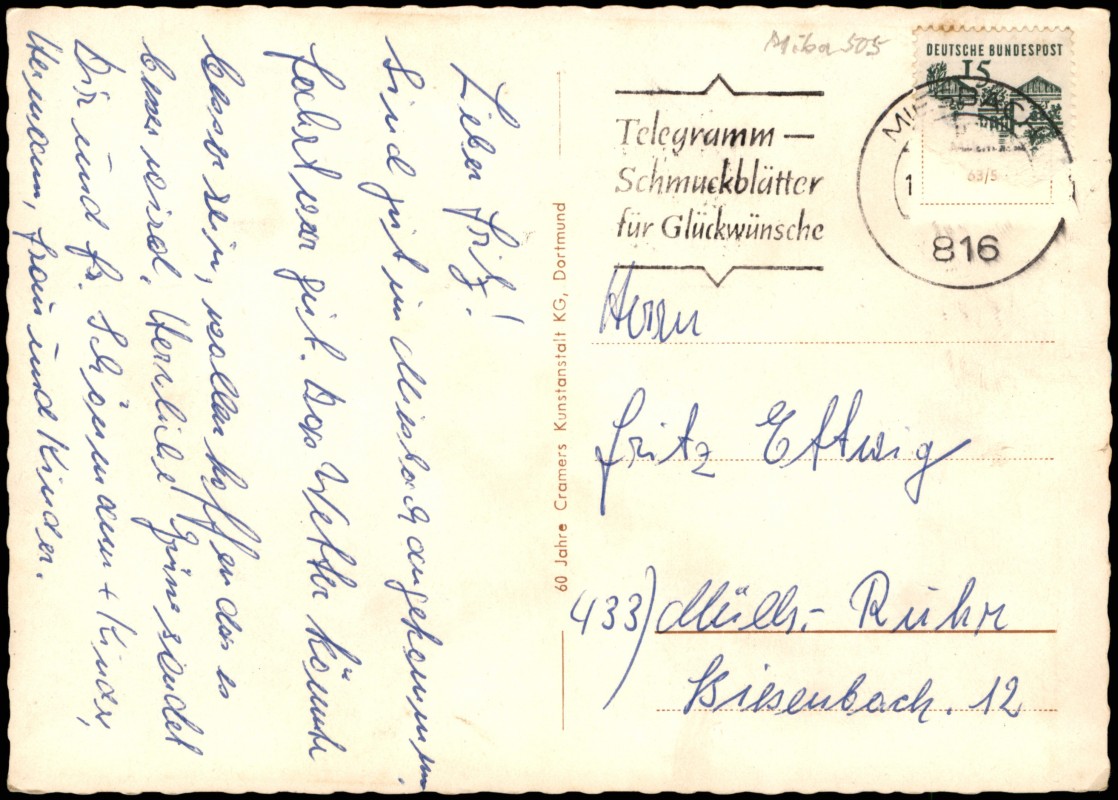 Lieber Fritz!
Sind gut in Miesbach angekommen.
Fahrt war gut. Das Wetter könnte
besser sein, wollen hoffen das es
besser wird. Herzliche Grüße sendet
Dir und Fr. Schürmann + Kinder,
Hermann, Frau und Kinder.
60 Jahre Cramers Kunstanstalt KG, Dortmund
Miba 505
DEUTSCHE BUNDESPOST
15
63/5
Telegramm —
Schmuckblätter
für Glückwünsche
816
Herrn
Fritz Ettwig
433) Mülh.- Ruhr
Biesenbach. 12